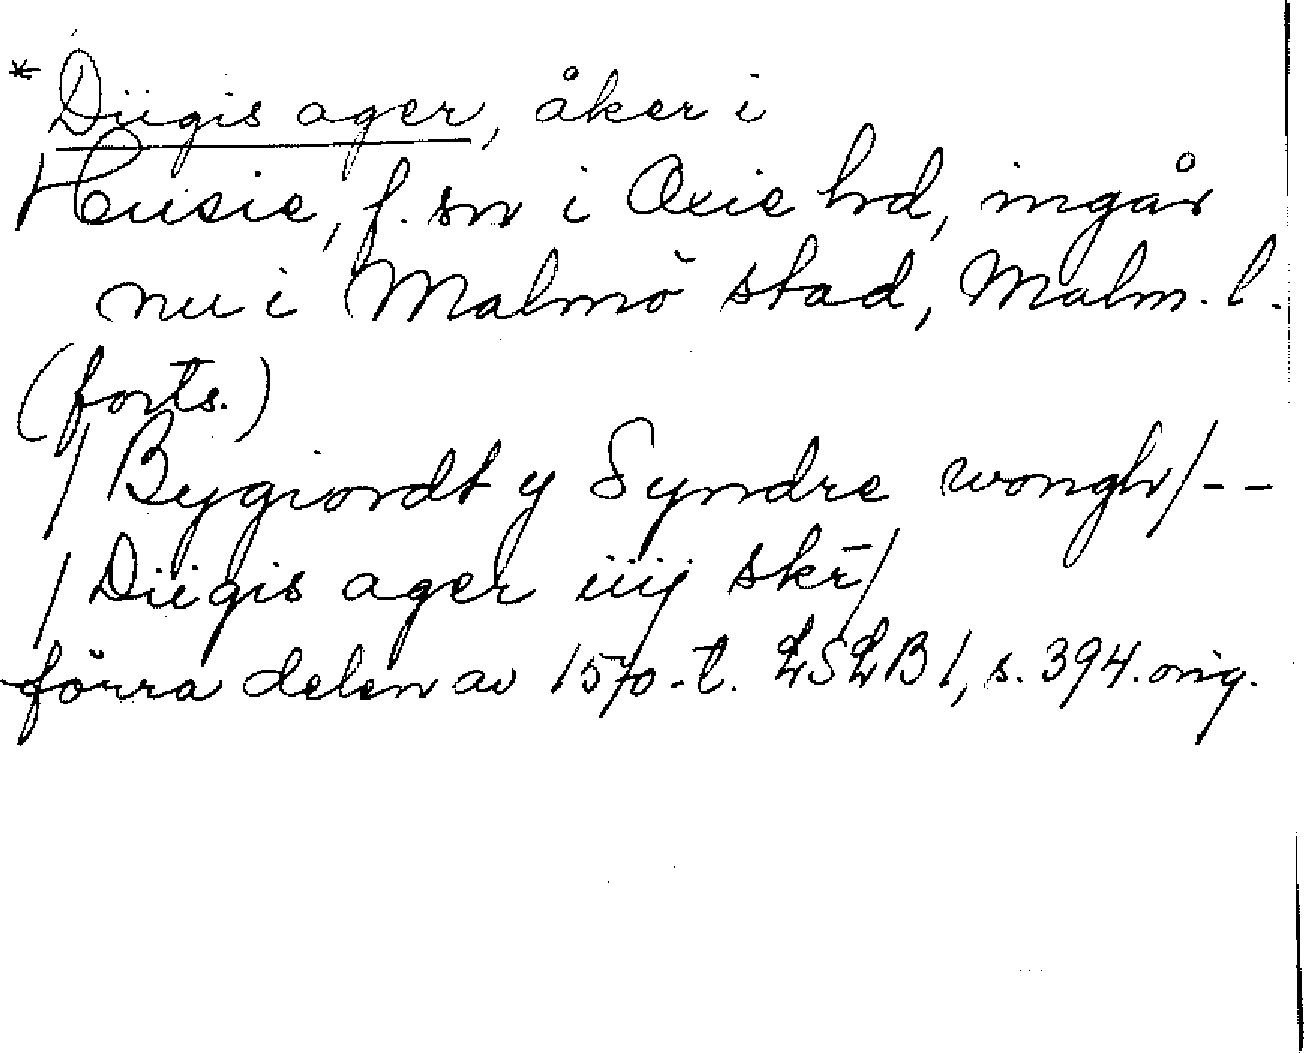 * Diigis ager, åker i
Husie, f. sn i Oxie hd, ingår
nu i Malmö stad, Malm. l.
(forts.)
/ Bygiordt y Syndre wongh / - -
/ Diigis ager iiij skr̄ /
förra delen av 1570-t. LSLB 1, s. 394. orig.